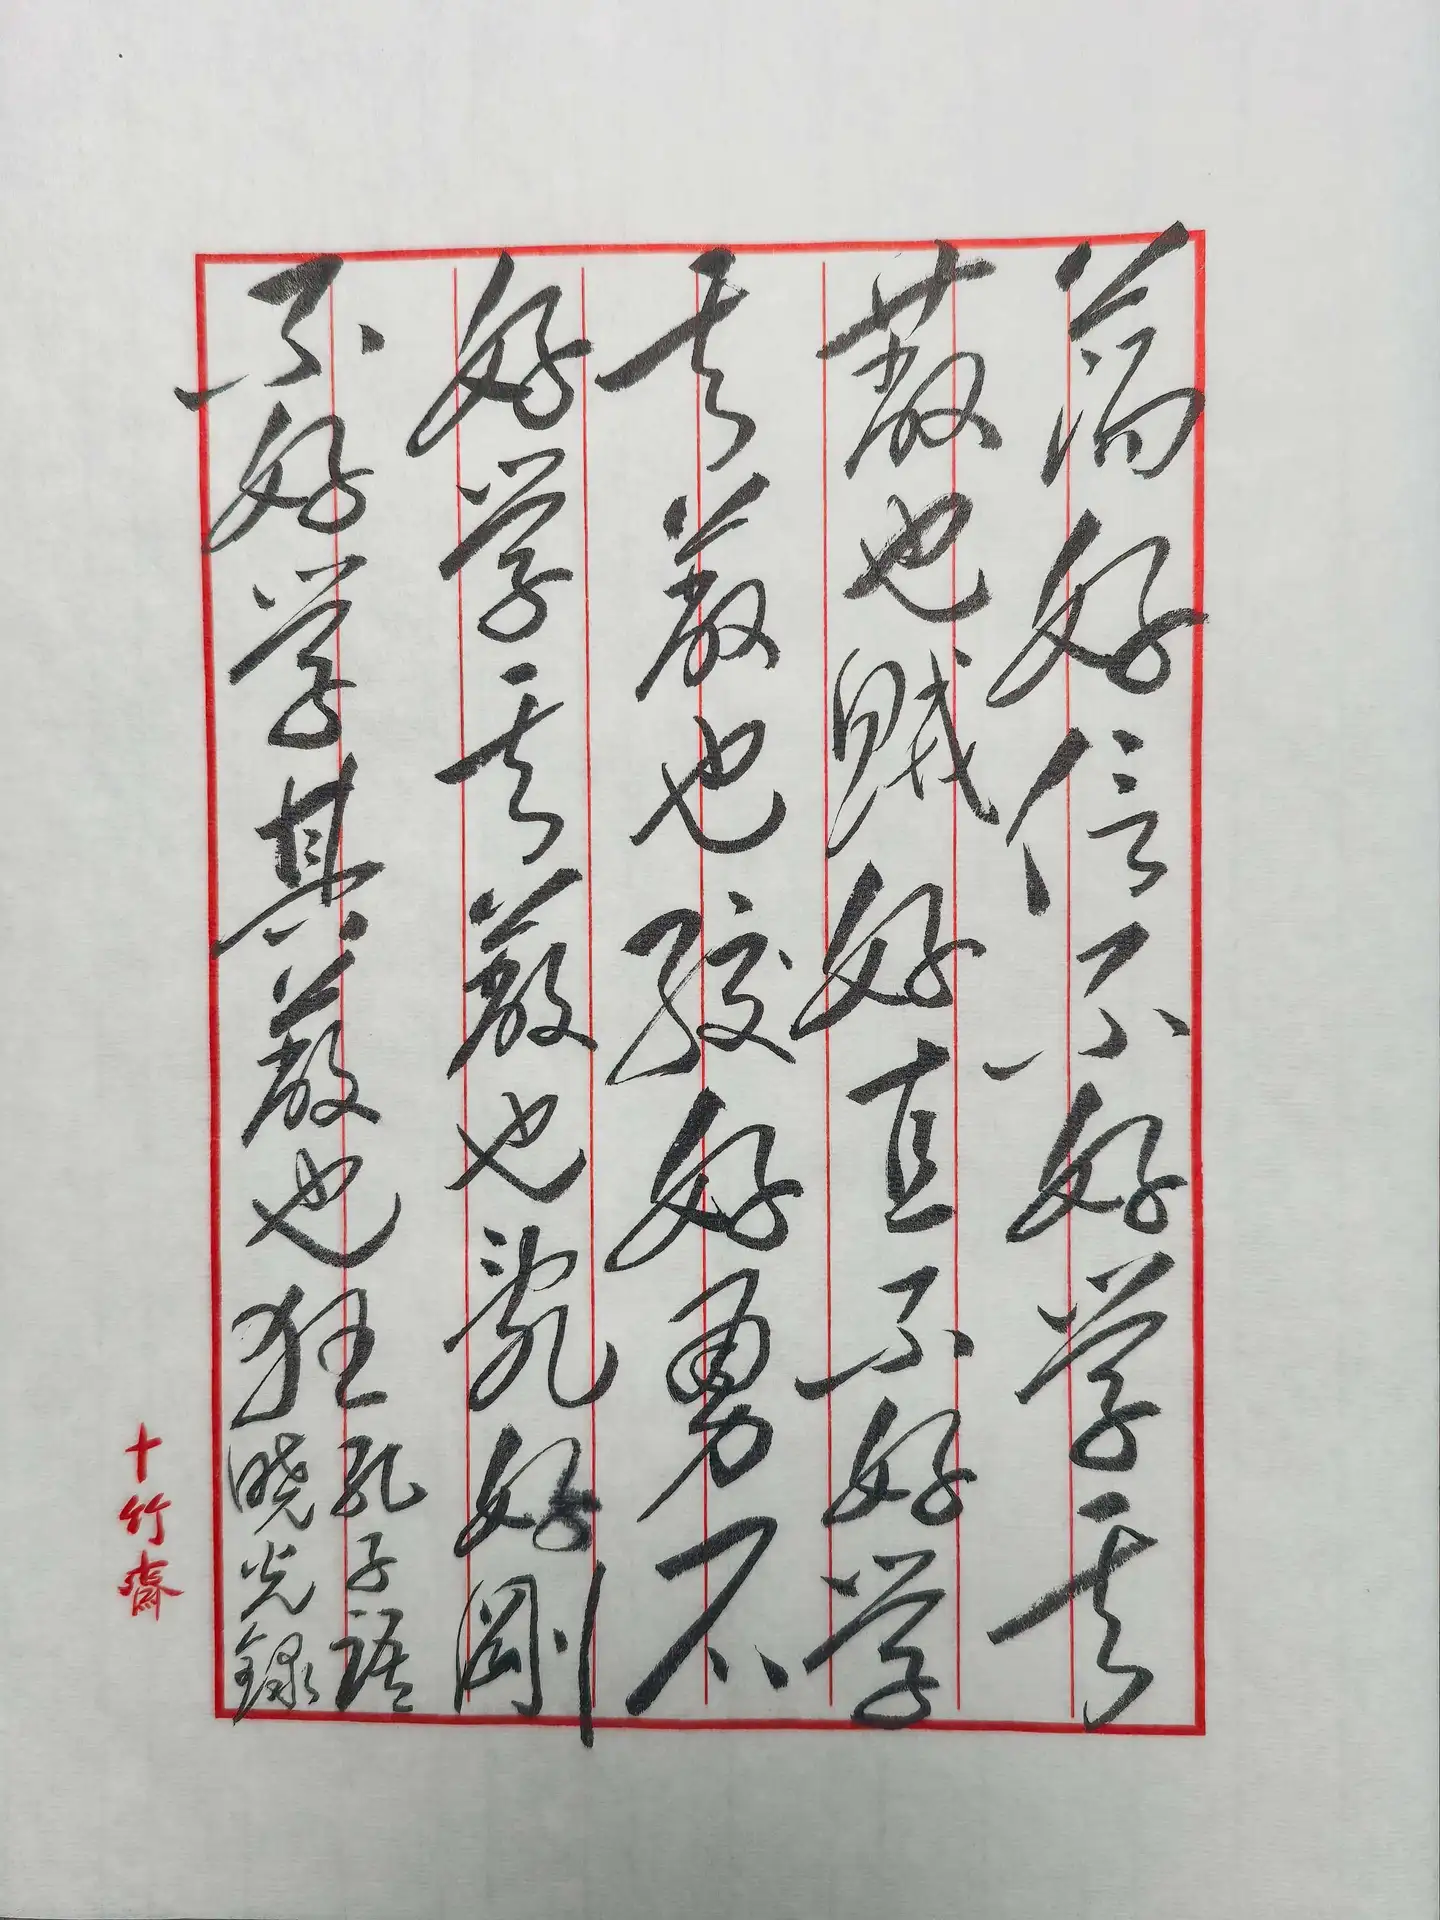 荡好信不好学其
蔽也贼好直不好学
其蔽也绞好勇不
好学其蔽也乱好刚
不好学其蔽也狂
孔子语
晓光録
十竹斋